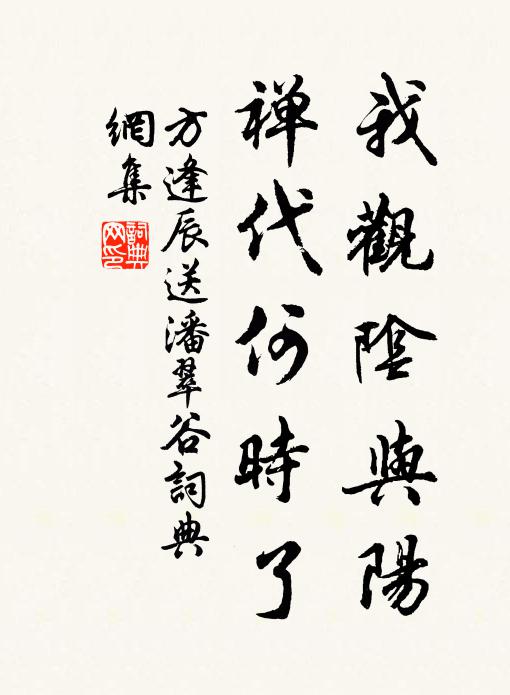 我觀陰與陽
禅代何時了
方逢辰送潘翠谷詞典
網集
詞典
网印